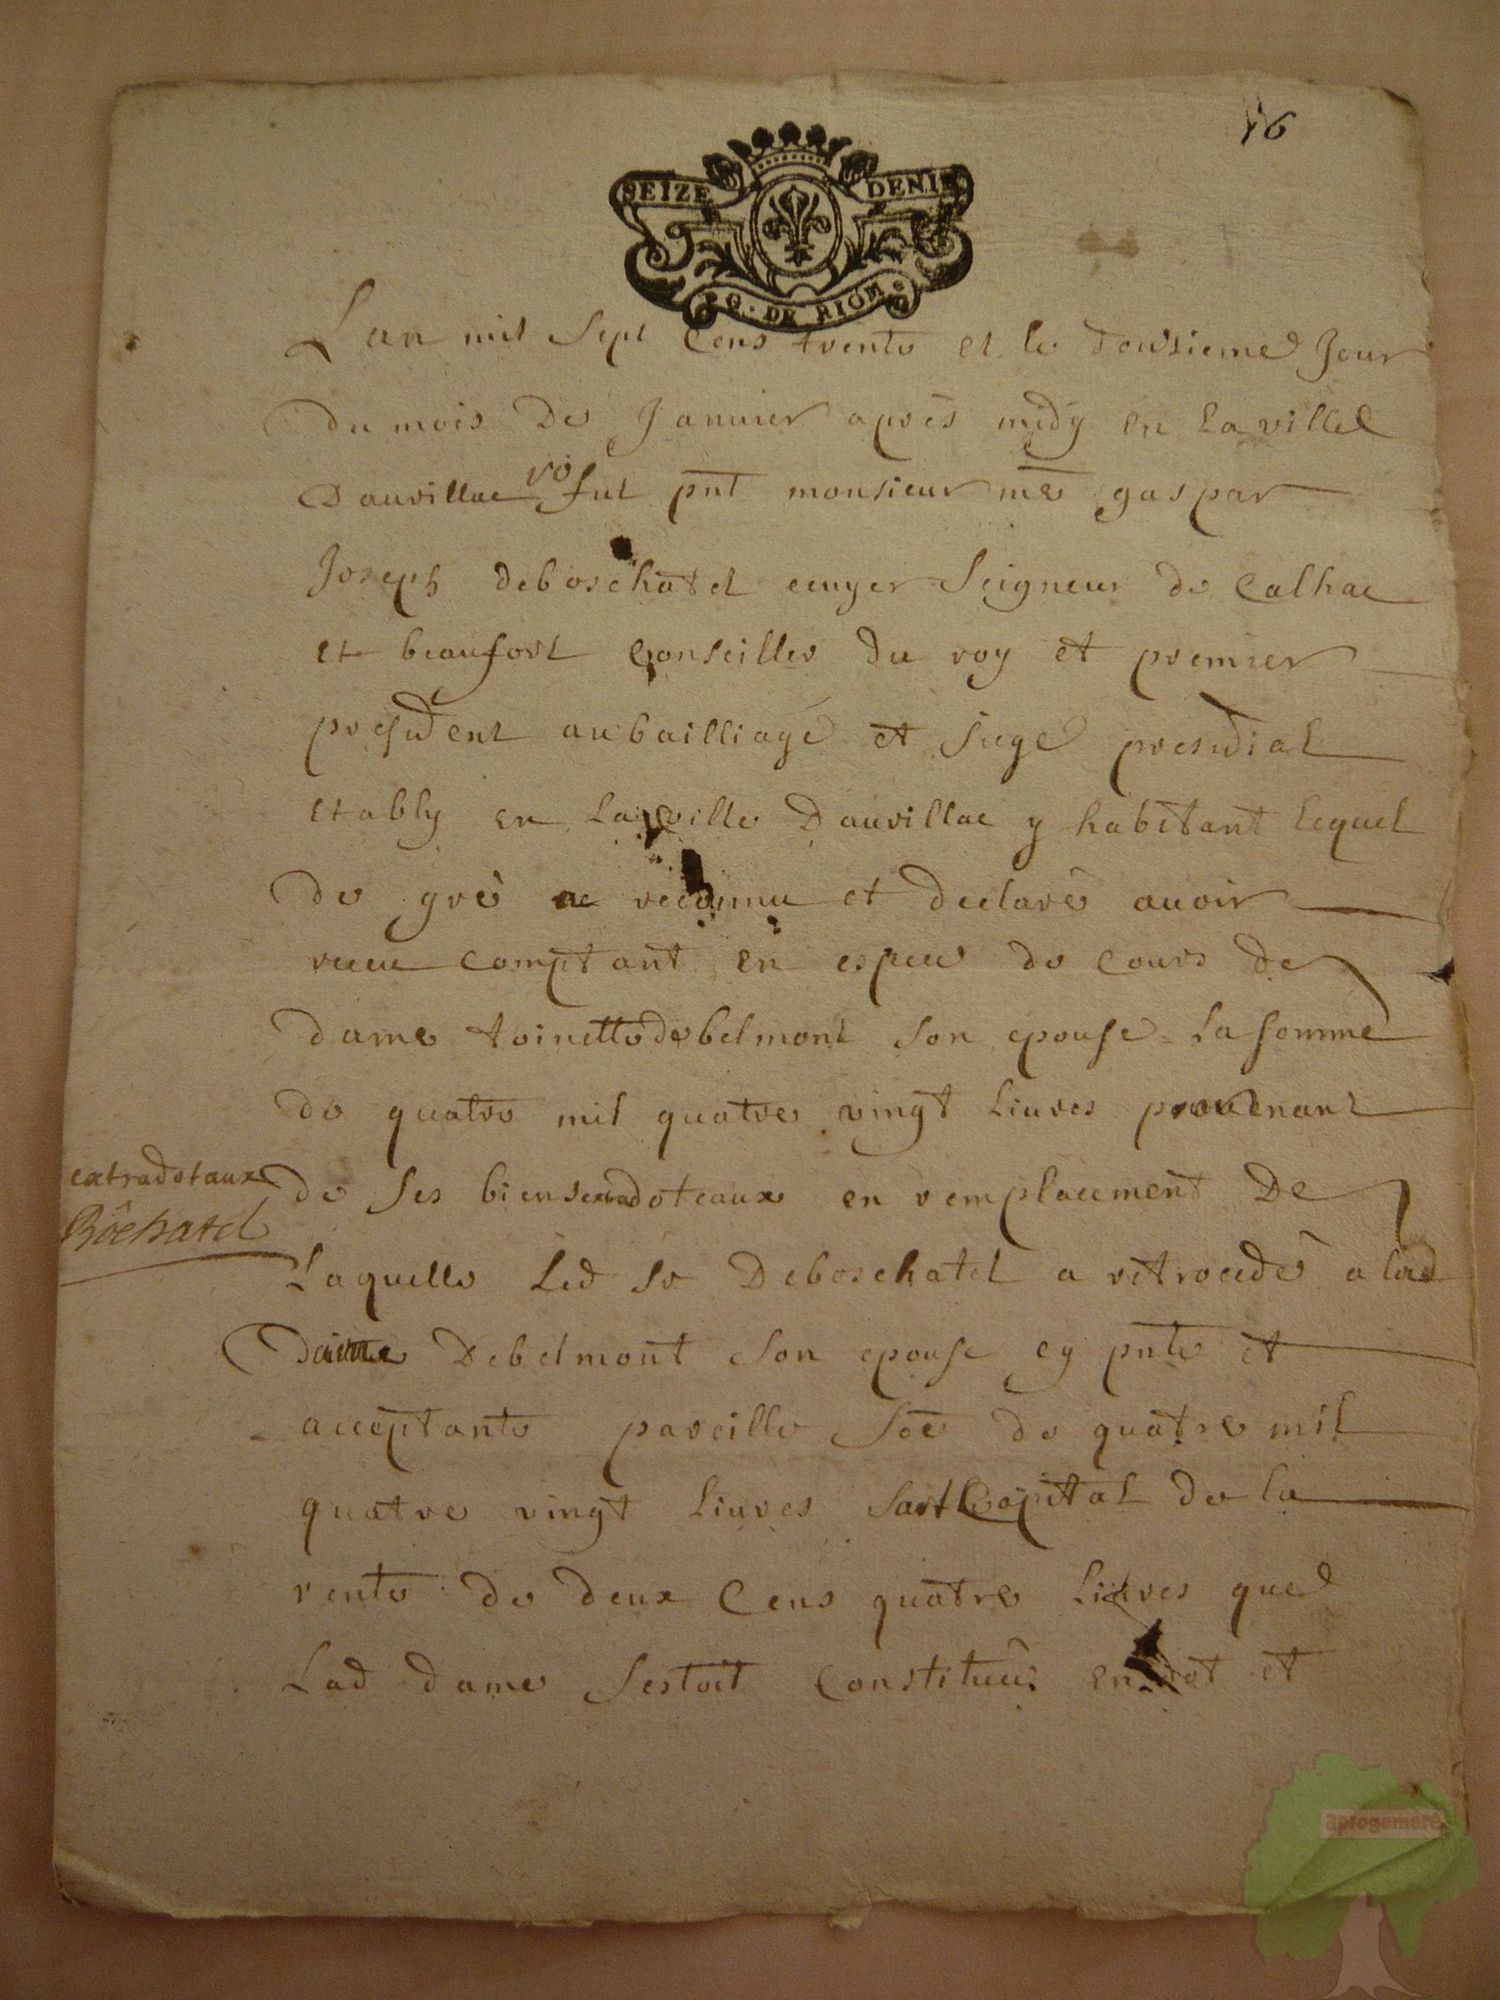 16
SEIZE DENIE
G. DE RIOM
Lan mil sept cens trente et le dousieme Jour
du mois de Januier après midy en la ville
Dauvillac fut pnt monsieur me gaspar
Joseph deboschatel ecuyer seigneur de Calhac
et beaufort Conseiller du roy et premier
president au bailliage et siege presidial
etably en la ville Dauvillac y habitant lequel
de gré a reconnu et declaré auoir
receu comptant en espece de cours de
dame toinette debelmont son epouse la somme
de quatre mil quatre vingt liures provenant
extradotaux
Bôchatel
de ses biens extradoteaux en remplacement de
laquelle led sr Deboschatel a retrocedé a lad
dame Debelmont son epouse cy pnte et
acceptante pareille soe de quatre mil
quatre vingt liures Capital de la
rente de deux cens quatre liures que
lad dame sestoit constituée en dot et
aprogemere